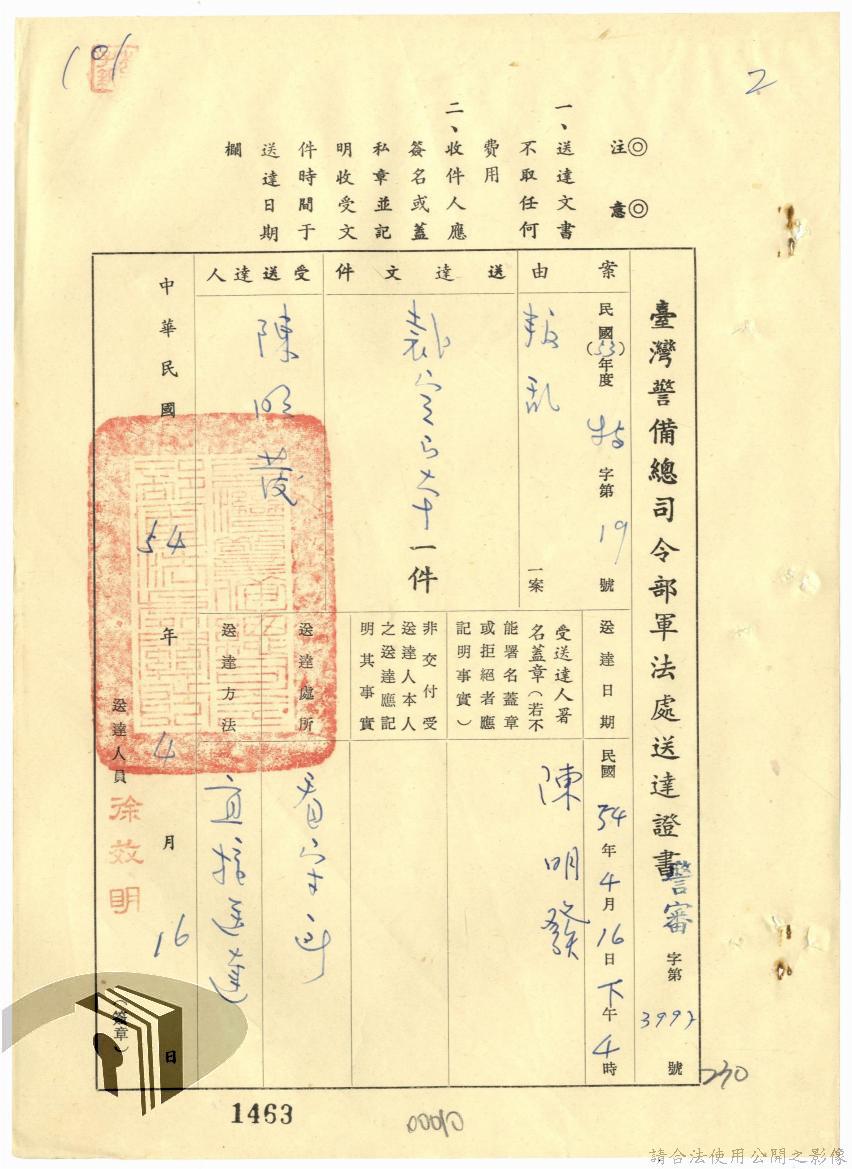 2
◎注意◎
一、送達文書
不取任何
費用
二、收件人應
簽名或蓋
私章並記
明收受文
件時間于
送達日期
欄
臺灣警備總司令部軍法處送達證書
警審字第399號
案由
民國(53)年度特字第19號
叛乱一案
送達文件
裁定正本一件
受送達人
陳明發
送達日期
民國54年4月16日下午4時
受送達人署
名蓋章(若不
能署名蓋章
或拒絕者應
記明事實)
陳明發
非交付受
送達人本人
之送達應記
明其事實
送達處所
看守所
送達方法
直接送達
中華民國54年4月16日
送達人員徐效明(簽章)
230
1463
請合法使用公開之影像